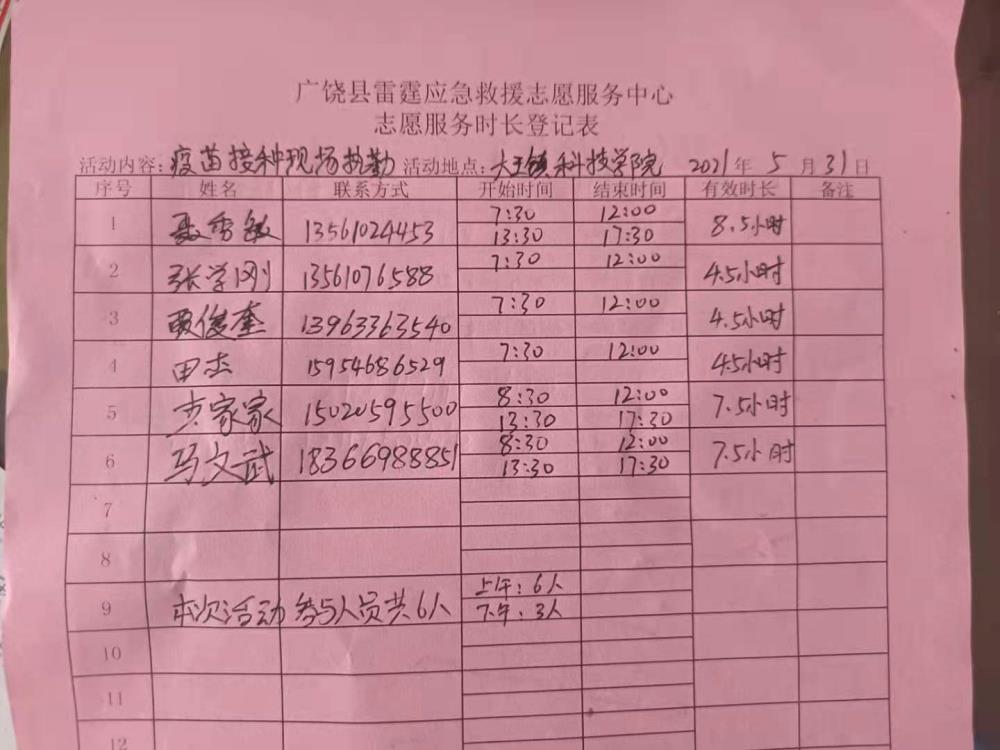 广饶县雷霆应急救援志愿服务中心
志愿服务时长登记表
活动内容:疫苗接种现场执勤 活动地点:大王镇科技学院 2021年5月31日
序号 姓名 联系方式 开始时间 结束时间 有效时长 备注
1 聂秀敏 13561024453 7:30 12:00 8.5小时
13:30 17:30
2 张学刚 13561076588 7:30 12:00 4.5小时
3 贾俊奎 13963363540 7:30 12:00 4.5小时
4 田杰 15954686529 7:30 12:00 4.5小时
5 家家 15020595500 8:30 12:00 7.5小时
13:30 17:30
6 马文武 18366988851 8:30 12:00 7.5小时
13:30 17:30
7
8
9 本次活动参与人员共6人 上午:6人
下午:3人
10
11
12